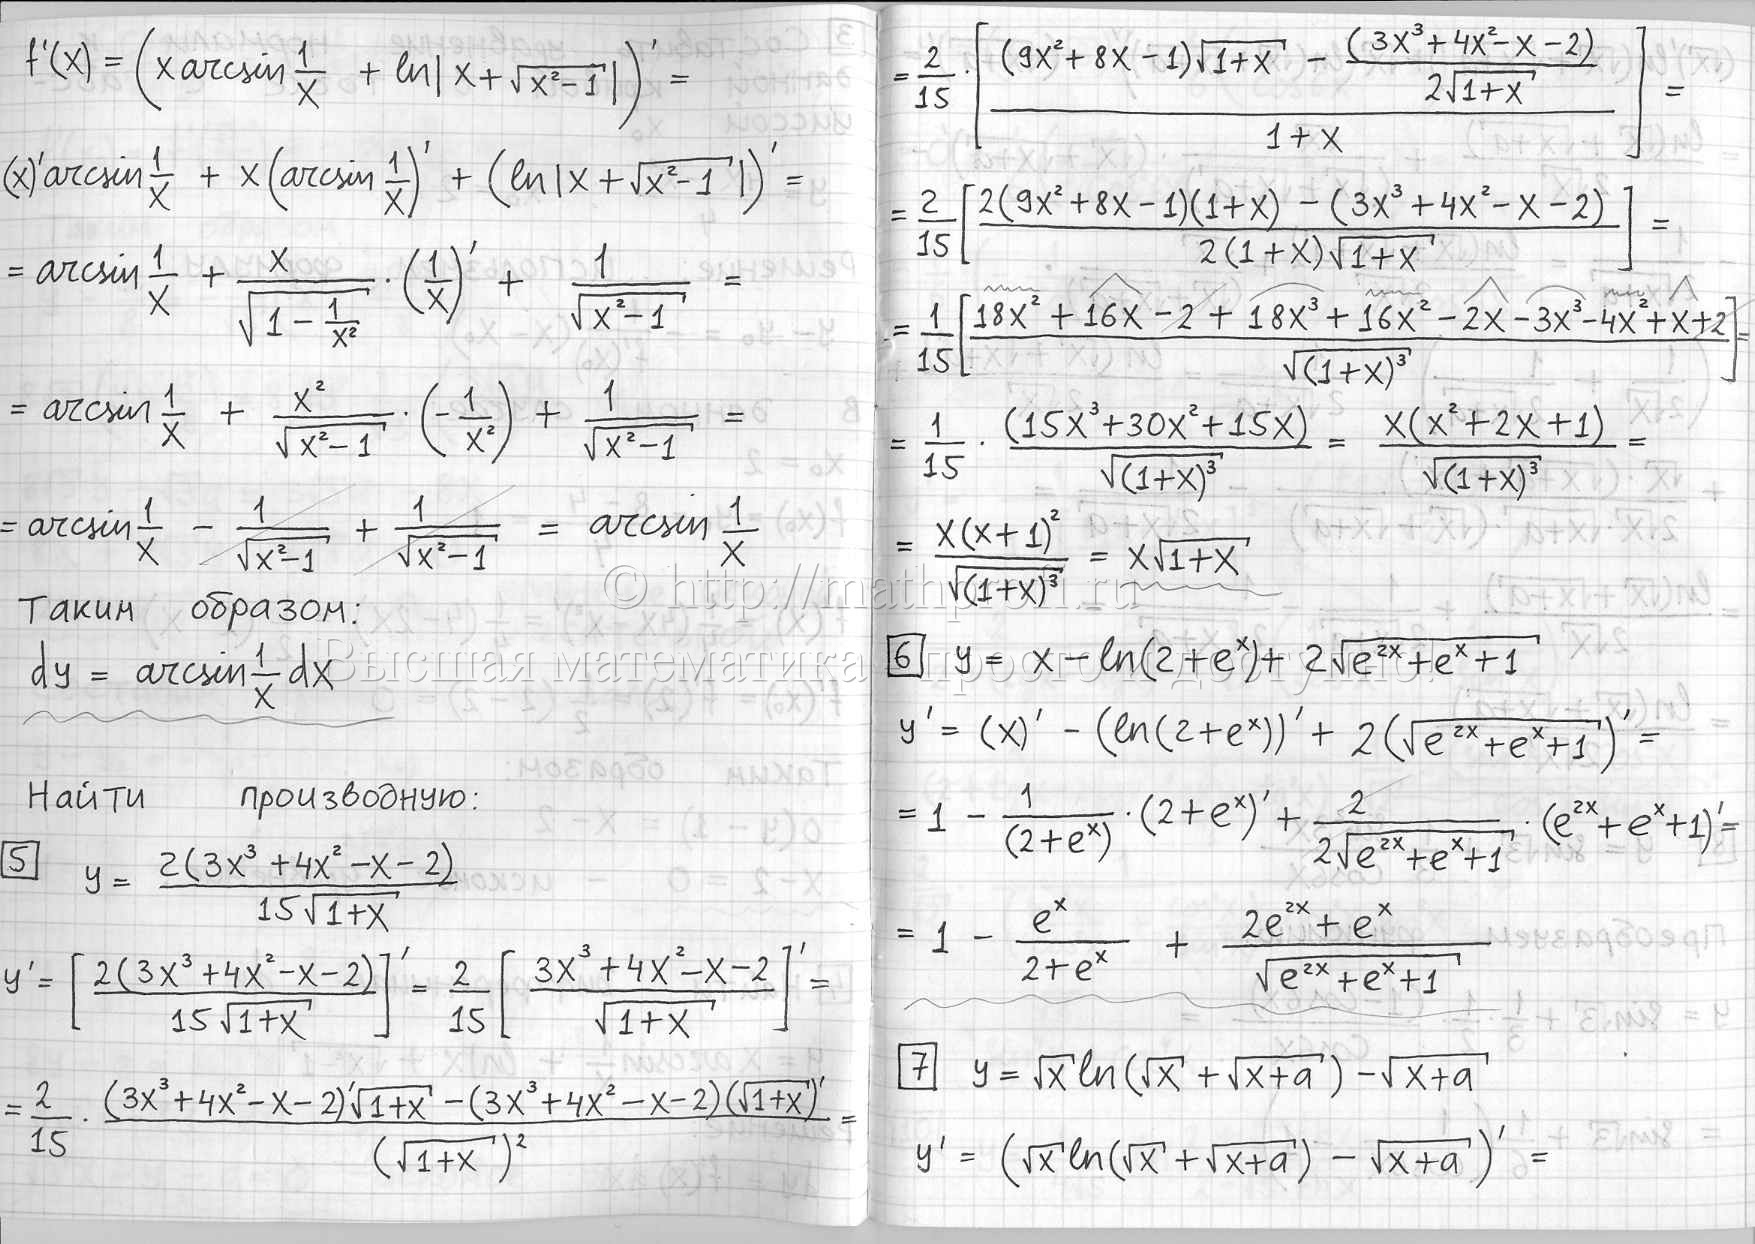 f'(x) = (x arcsin 1/x + ln|x + √(x²-1)|)' =
(x)' arcsin 1/x + x(arcsin 1/x)' + (ln|x + √(x²-1)|)' =
= arcsin 1/x + x/√(1 - 1/x²) · (1/x)' + 1/√(x²-1) =
= arcsin 1/x + x²/√(x²-1) · (-1/x²) + 1/√(x²-1) =
= arcsin 1/x - 1/√(x²-1) + 1/√(x²-1) = arcsin 1/x
Таким образом:
dy = arcsin 1/x dx
Найти производную:
5 y = 2(3x³+4x²-x-2)/(15√(1+x))
y' = [2(3x³+4x²-x-2)/(15√(1+x))]' = 2/15 [(3x³+4x²-x-2)/√(1+x)]' =
= 2/15 · ((3x³+4x²-x-2)'√(1+x) - (3x³+4x²-x-2)(√(1+x))')/(√(1+x))² =
= 2/15 · [((9x²+8x-1)√(1+x) - (3x³+4x²-x-2)/(2√(1+x)))/(1+x)] =
= 2/15 [(2(9x²+8x-1)(1+x) - (3x³+4x²-x-2))/(2(1+x)√(1+x))] =
= 1/15 [(18x²+16x-2+18x³+16x²-2x-3x³-4x²+x+2)/√((1+x)³)] =
= 1/15 · (15x³+30x²+15x)/√((1+x)³) = x(x²+2x+1)/√((1+x)³) =
= x(x+1)²/√((1+x)³) = x√(1+x)
© http://mathprofi.ru
Высшая математика – просто и доступно!
6 y = x - ln(2+eˣ) + 2√(e²ˣ+eˣ+1)
y' = (x)' - (ln(2+eˣ))' + 2(√(e²ˣ+eˣ+1))' =
= 1 - 1/(2+eˣ) · (2+eˣ)' + 2/(2√(e²ˣ+eˣ+1)) · (e²ˣ+eˣ+1)' =
= 1 - eˣ/(2+eˣ) + (2e²ˣ+eˣ)/√(e²ˣ+eˣ+1)
7 y = √x ln(√x + √(x+a)) - √(x+a)
y' = (√x ln(√x + √(x+a)) - √(x+a))' =